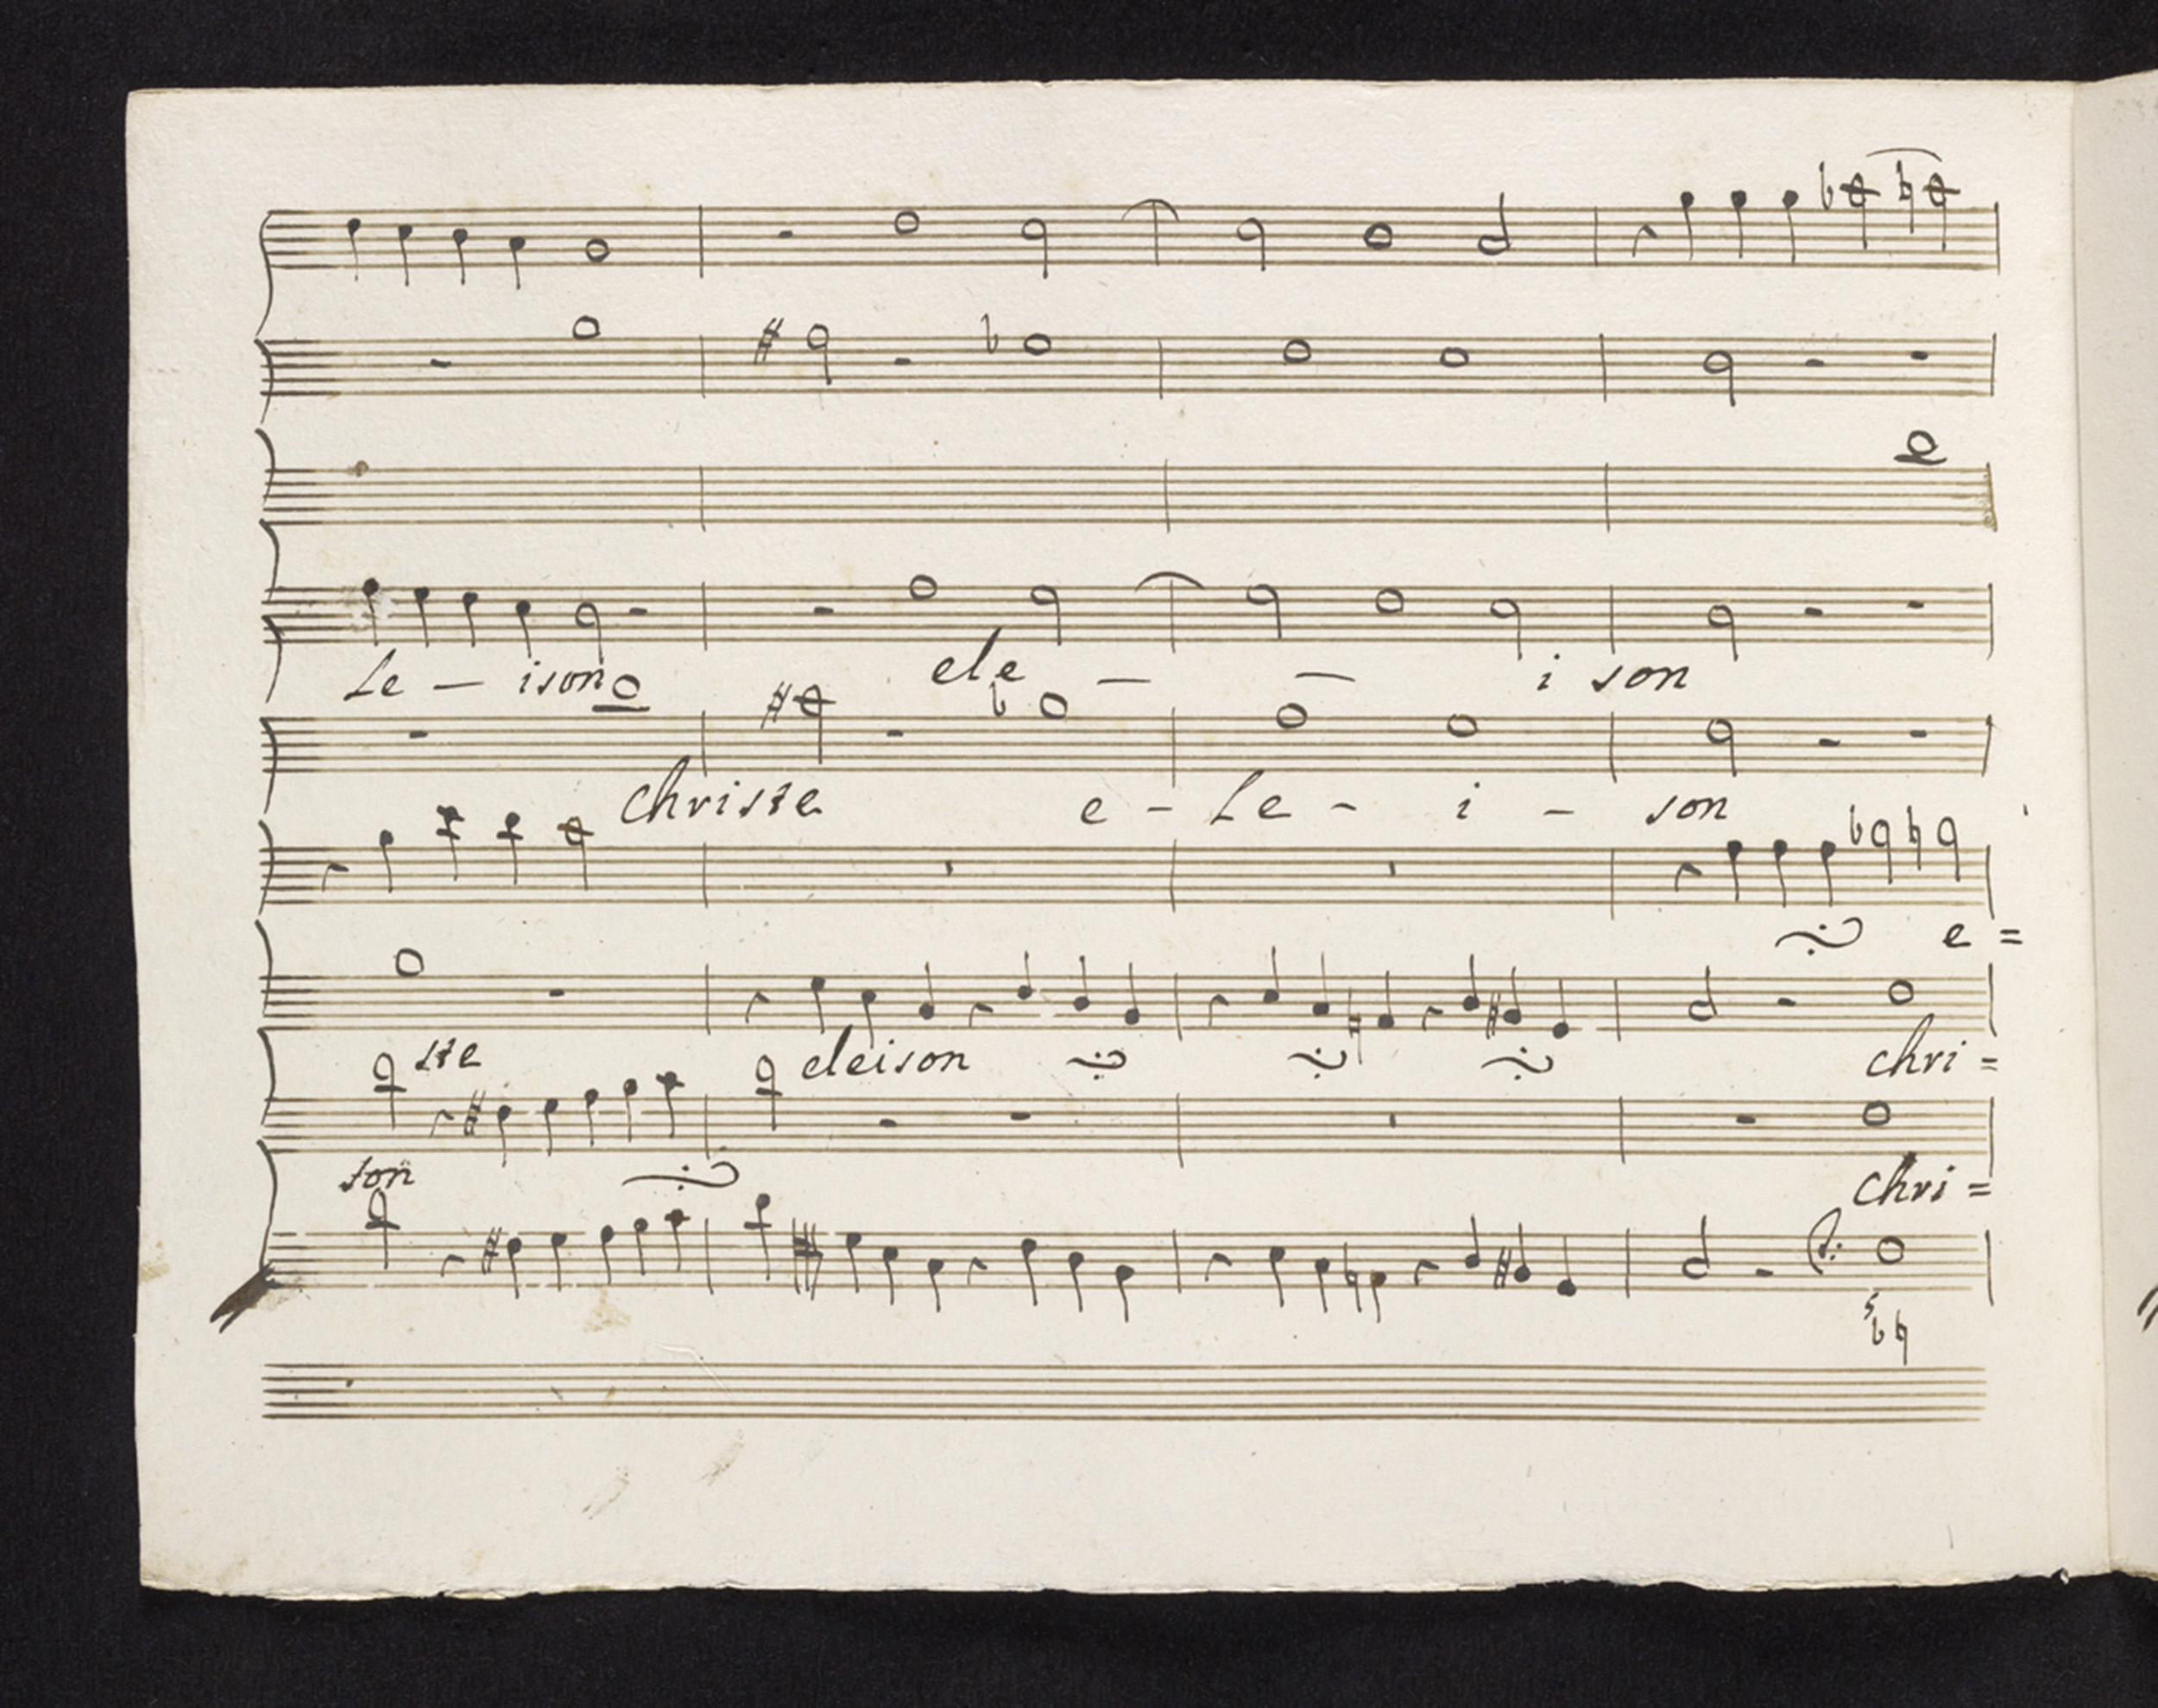 Le — ison ele — — i son
christe e - Le - i - son
e =
ste eleison chri =
son chri =
5